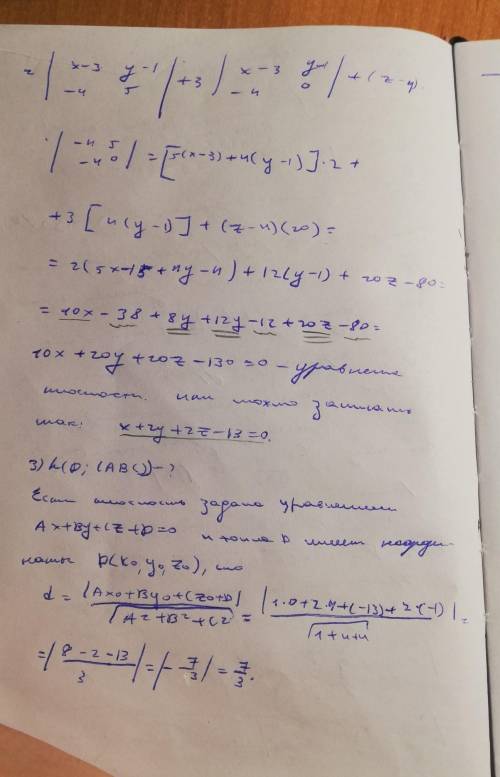 2 | x-3 y-1 -4 5 | +3 | x-3 y-1 -4 0 | + (z-4)·
· | -4 5 -4 0 | = [5(x-3)+4(y-1)]·2 +
+3 [4(y-1)] + (z-4)(20) =
= 2(5x-15+4y-4) + 12(y-1) + 20z-80=
= 10x - 38 + 8y + 12y - 12 + 20z - 80=
10x+20y+20z-130=0 - уравнение
плоскости. или можно записать
так: x+2y+2z-13=0.
3) h(D; (ABC))-?
Если плоскость задана уравнением
Ax+By+Cz+D=0 и точка D имеет коорди
наты D(x₀,y₀,z₀), то
d = |Ax₀+By₀+Cz₀+D| / √(A²+B²+C²) = |1·0+2·4+(-13)+2·(-1)| / √(1+4+4) =
= | (8-2-13) / 3 | = | -7/3 | = 7/3.